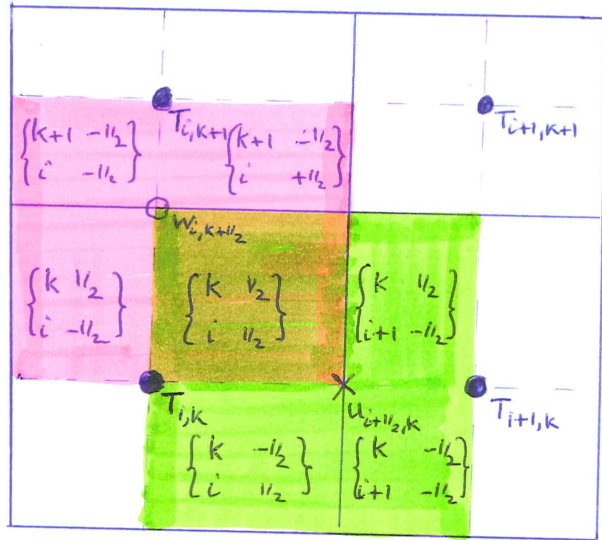 T_{i,k+1}
T_{i+1,k+1}
{k+1 -1/2
i -1/2}
{k+1 -1/2
i +1/2}
W_{i,k+1/2}
{k 1/2
i -1/2}
{k 1/2
i 1/2}
{k 1/2
i+1 -1/2}
T_{i,k}
u_{i+1/2,k}
T_{i+1,k}
{k -1/2
i 1/2}
{k -1/2
i+1 -1/2}